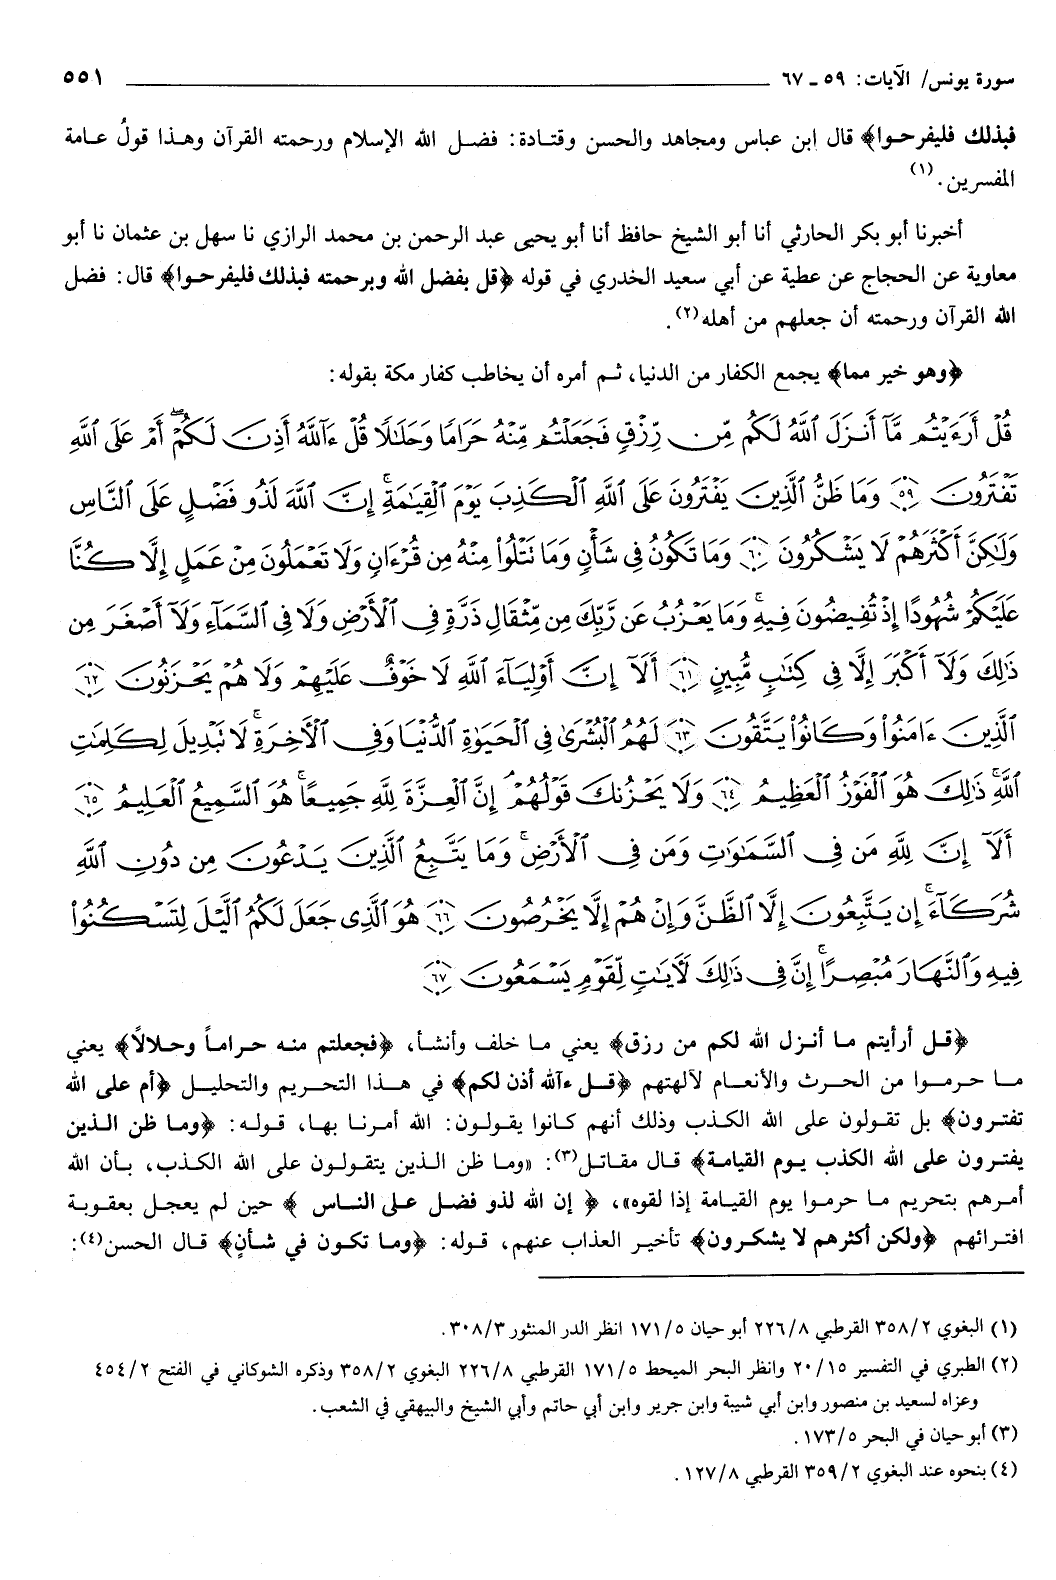 سورة يونس/ الآيات: ٥٩ ـ ٦٧ ٥٥١
فبذلك فليفرحوا﴾ قال ابن عباس ومجاهد والحسن وقتادة: فضل الله الإسلام ورحمته القرآن وهذا قولُ عامة
المفسرين.(١)
أخبرنا أبو بكر الحارثي أنا أبو الشيخ حافظ أنا أبو يحيى عبد الرحمن بن محمد الرازي نا سهل بن عثمان نا أبو
معاوية عن الحجاج عن عطية عن أبي سعيد الخدري في قوله ﴿قل بفضل الله وبرحمته فبذلك فليفرحوا﴾ قال: فضل
الله القرآن ورحمته أن جعلهم من أهله(٢).
﴿وهو خير مما﴾ يجمع الكفار من الدنيا، ثم أمره أن يخاطب كفار مكة بقوله:
قُلْ أَرَءَيْتُم مَّآ أَنزَلَ ٱللَّهُ لَكُم مِّن رِّزْقٍ فَجَعَلْتُم مِّنْهُ حَرَامًا وَحَلَٰلًا قُلْ ءَآللَّهُ أَذِنَ لَكُمْ ۖ أَمْ عَلَى ٱللَّهِ
تَفْتَرُونَ ﴿٥٩﴾ وَمَا ظَنُّ ٱلَّذِينَ يَفْتَرُونَ عَلَى ٱللَّهِ ٱلْكَذِبَ يَوْمَ ٱلْقِيَٰمَةِ ۗ إِنَّ ٱللَّهَ لَذُو فَضْلٍ عَلَى ٱلنَّاسِ
وَلَٰكِنَّ أَكْثَرَهُمْ لَا يَشْكُرُونَ ﴿٦٠﴾ وَمَا تَكُونُ فِى شَأْنٍ وَمَا تَتْلُوا۟ مِنْهُ مِن قُرْءَانٍ وَلَا تَعْمَلُونَ مِنْ عَمَلٍ إِلَّا كُنَّا
عَلَيْكُمْ شُهُودًا إِذْ تُفِيضُونَ فِيهِ ۚ وَمَا يَعْزُبُ عَن رَّبِّكَ مِن مِّثْقَالِ ذَرَّةٍ فِى ٱلْأَرْضِ وَلَا فِى ٱلسَّمَآءِ وَلَآ أَصْغَرَ مِن
ذَٰلِكَ وَلَآ أَكْبَرَ إِلَّا فِى كِتَٰبٍ مُّبِينٍ ﴿٦١﴾ أَلَآ إِنَّ أَوْلِيَآءَ ٱللَّهِ لَا خَوْفٌ عَلَيْهِمْ وَلَا هُمْ يَحْزَنُونَ ﴿٦٢﴾
ٱلَّذِينَ ءَامَنُوا۟ وَكَانُوا۟ يَتَّقُونَ ﴿٦٣﴾ لَهُمُ ٱلْبُشْرَىٰ فِى ٱلْحَيَوٰةِ ٱلدُّنْيَا وَفِى ٱلْأَخِرَةِ ۚ لَا تَبْدِيلَ لِكَلِمَٰتِ
ٱللَّهِ ۚ ذَٰلِكَ هُوَ ٱلْفَوْزُ ٱلْعَظِيمُ ﴿٦٤﴾ وَلَا يَحْزُنكَ قَوْلُهُمْ ۘ إِنَّ ٱلْعِزَّةَ لِلَّهِ جَمِيعًا ۚ هُوَ ٱلسَّمِيعُ ٱلْعَلِيمُ ﴿٦٥﴾
أَلَآ إِنَّ لِلَّهِ مَن فِى ٱلسَّمَٰوَٰتِ وَمَن فِى ٱلْأَرْضِ ۗ وَمَا يَتَّبِعُ ٱلَّذِينَ يَدْعُونَ مِن دُونِ ٱللَّهِ
شُرَكَآءَ ۚ إِن يَتَّبِعُونَ إِلَّا ٱلظَّنَّ وَإِنْ هُمْ إِلَّا يَخْرُصُونَ ﴿٦٦﴾ هُوَ ٱلَّذِى جَعَلَ لَكُمُ ٱلَّيْلَ لِتَسْكُنُوا۟
فِيهِ وَٱلنَّهَارَ مُبْصِرًا ۚ إِنَّ فِى ذَٰلِكَ لَءَايَٰتٍ لِّقَوْمٍ يَسْمَعُونَ ﴿٦٧﴾
﴿قل أرأيتم ما أنزل الله لكم من رزق﴾ يعني ما خلف وأنشأ، ﴿فجعلتم منه حراماً وحلالاً﴾ يعني
ما حرموا من الحرث والأنعام لآلهتهم ﴿قل ءآلله أذن لكم﴾ في هذا التحريم والتحليل ﴿أم على الله
تفترون﴾ بل تقولون على الله الكذب وذلك أنهم كانوا يقولون: الله أمرنا بها، قوله: ﴿وما ظن الذين
يفترون على الله الكذب يوم القيامة﴾ قال مقاتل(٣): «وما ظن الذين يتقولون على الله الكذب، بأن الله
أمرهم بتحريم ما حرموا يوم القيامة إذا لقوه»، ﴿ إن الله لذو فضل على الناس ﴾ حين لم يعجل بعقوبة
افترائهم ﴿ولكن أكثرهم لا يشكرون﴾ تأخير العذاب عنهم، قوله: ﴿وما تكون في شأنٍ﴾ قال الحسن(٤):
(١) البغوي ٣٥٨/٢ القرطبي ٢٢٦/٨ أبو حيان ١٧١/٥ انظر الدر المنثور ٣٠٨/٣.
(٢) الطبري في التفسير ٢٠/١٥ وانظر البحر الميحط ١٧١/٥ القرطبي ٢٢٦/٨ البغوي ٣٥٨/٢ وذكره الشوكاني في الفتح ٤٥٤/٢
وعزاه لسعيد بن منصور وابن أبي شيبة وابن جرير وابن أبي حاتم وأبي الشيخ والبيهقي في الشعب.
(٣) أبو حيان في البحر ١٧٣/٥.
(٤) بنحوه عند البغوي ٣٥٩/٢ القرطبي ١٢٧/٨.